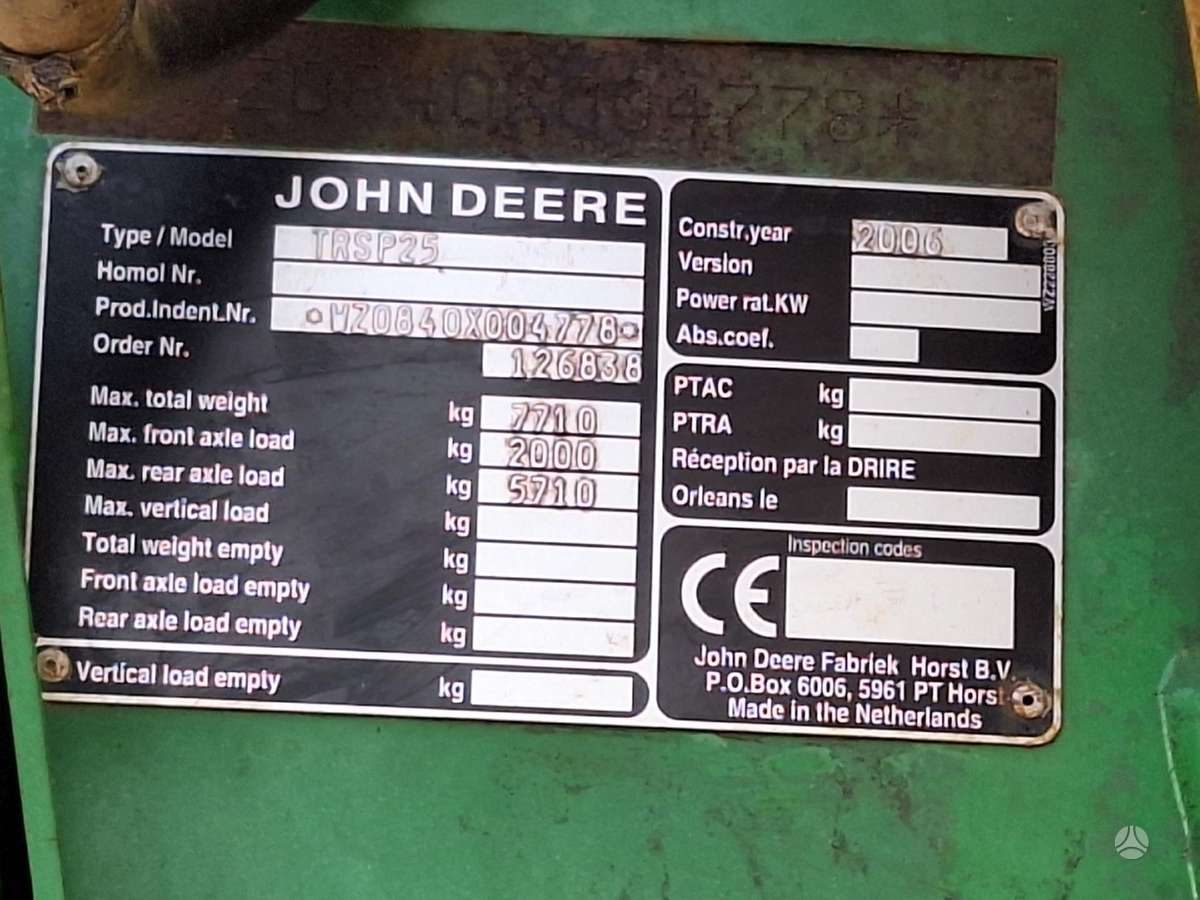 0840X004778*
JOHN DEERE
Type / Model TRSP25
Homol Nr.
Prod.Indent.Nr. *WZ0840X004778*
Order Nr. 126838
Max. total weight kg 7710
Max. front axle load kg 2000
Max. rear axle load kg 5710
Max. vertical load kg
Total weight empty kg
Front axle load empty kg
Rear axle load empty kg
Vertical load empty kg
Constr.year 2006
Version
Power rat.KW
Abs.coef.
PTAC kg
PTRA kg
Réception par la DRIRE
Orleans le
Inspection codes
CE
John Deere Fabriek Horst B.V.
P.O.Box 6006, 5961 PT Horst
Made in the Netherlands